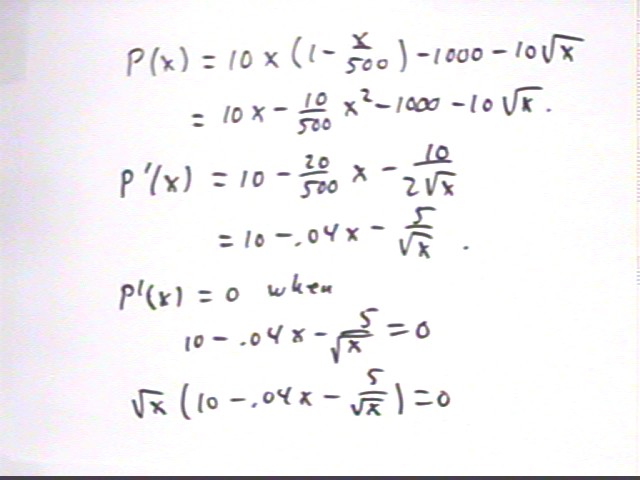 P(x) = 10x(1 - x/500) - 1000 - 10√x
= 10x - 10/500 x² - 1000 - 10√x.
P'(x) = 10 - 20/500 x - 10/2√x
= 10 - .04x - 5/√x.
P'(x) = 0 when
10 - .04x - 5/√x = 0
√x(10 - .04x - 5/√x) = 0